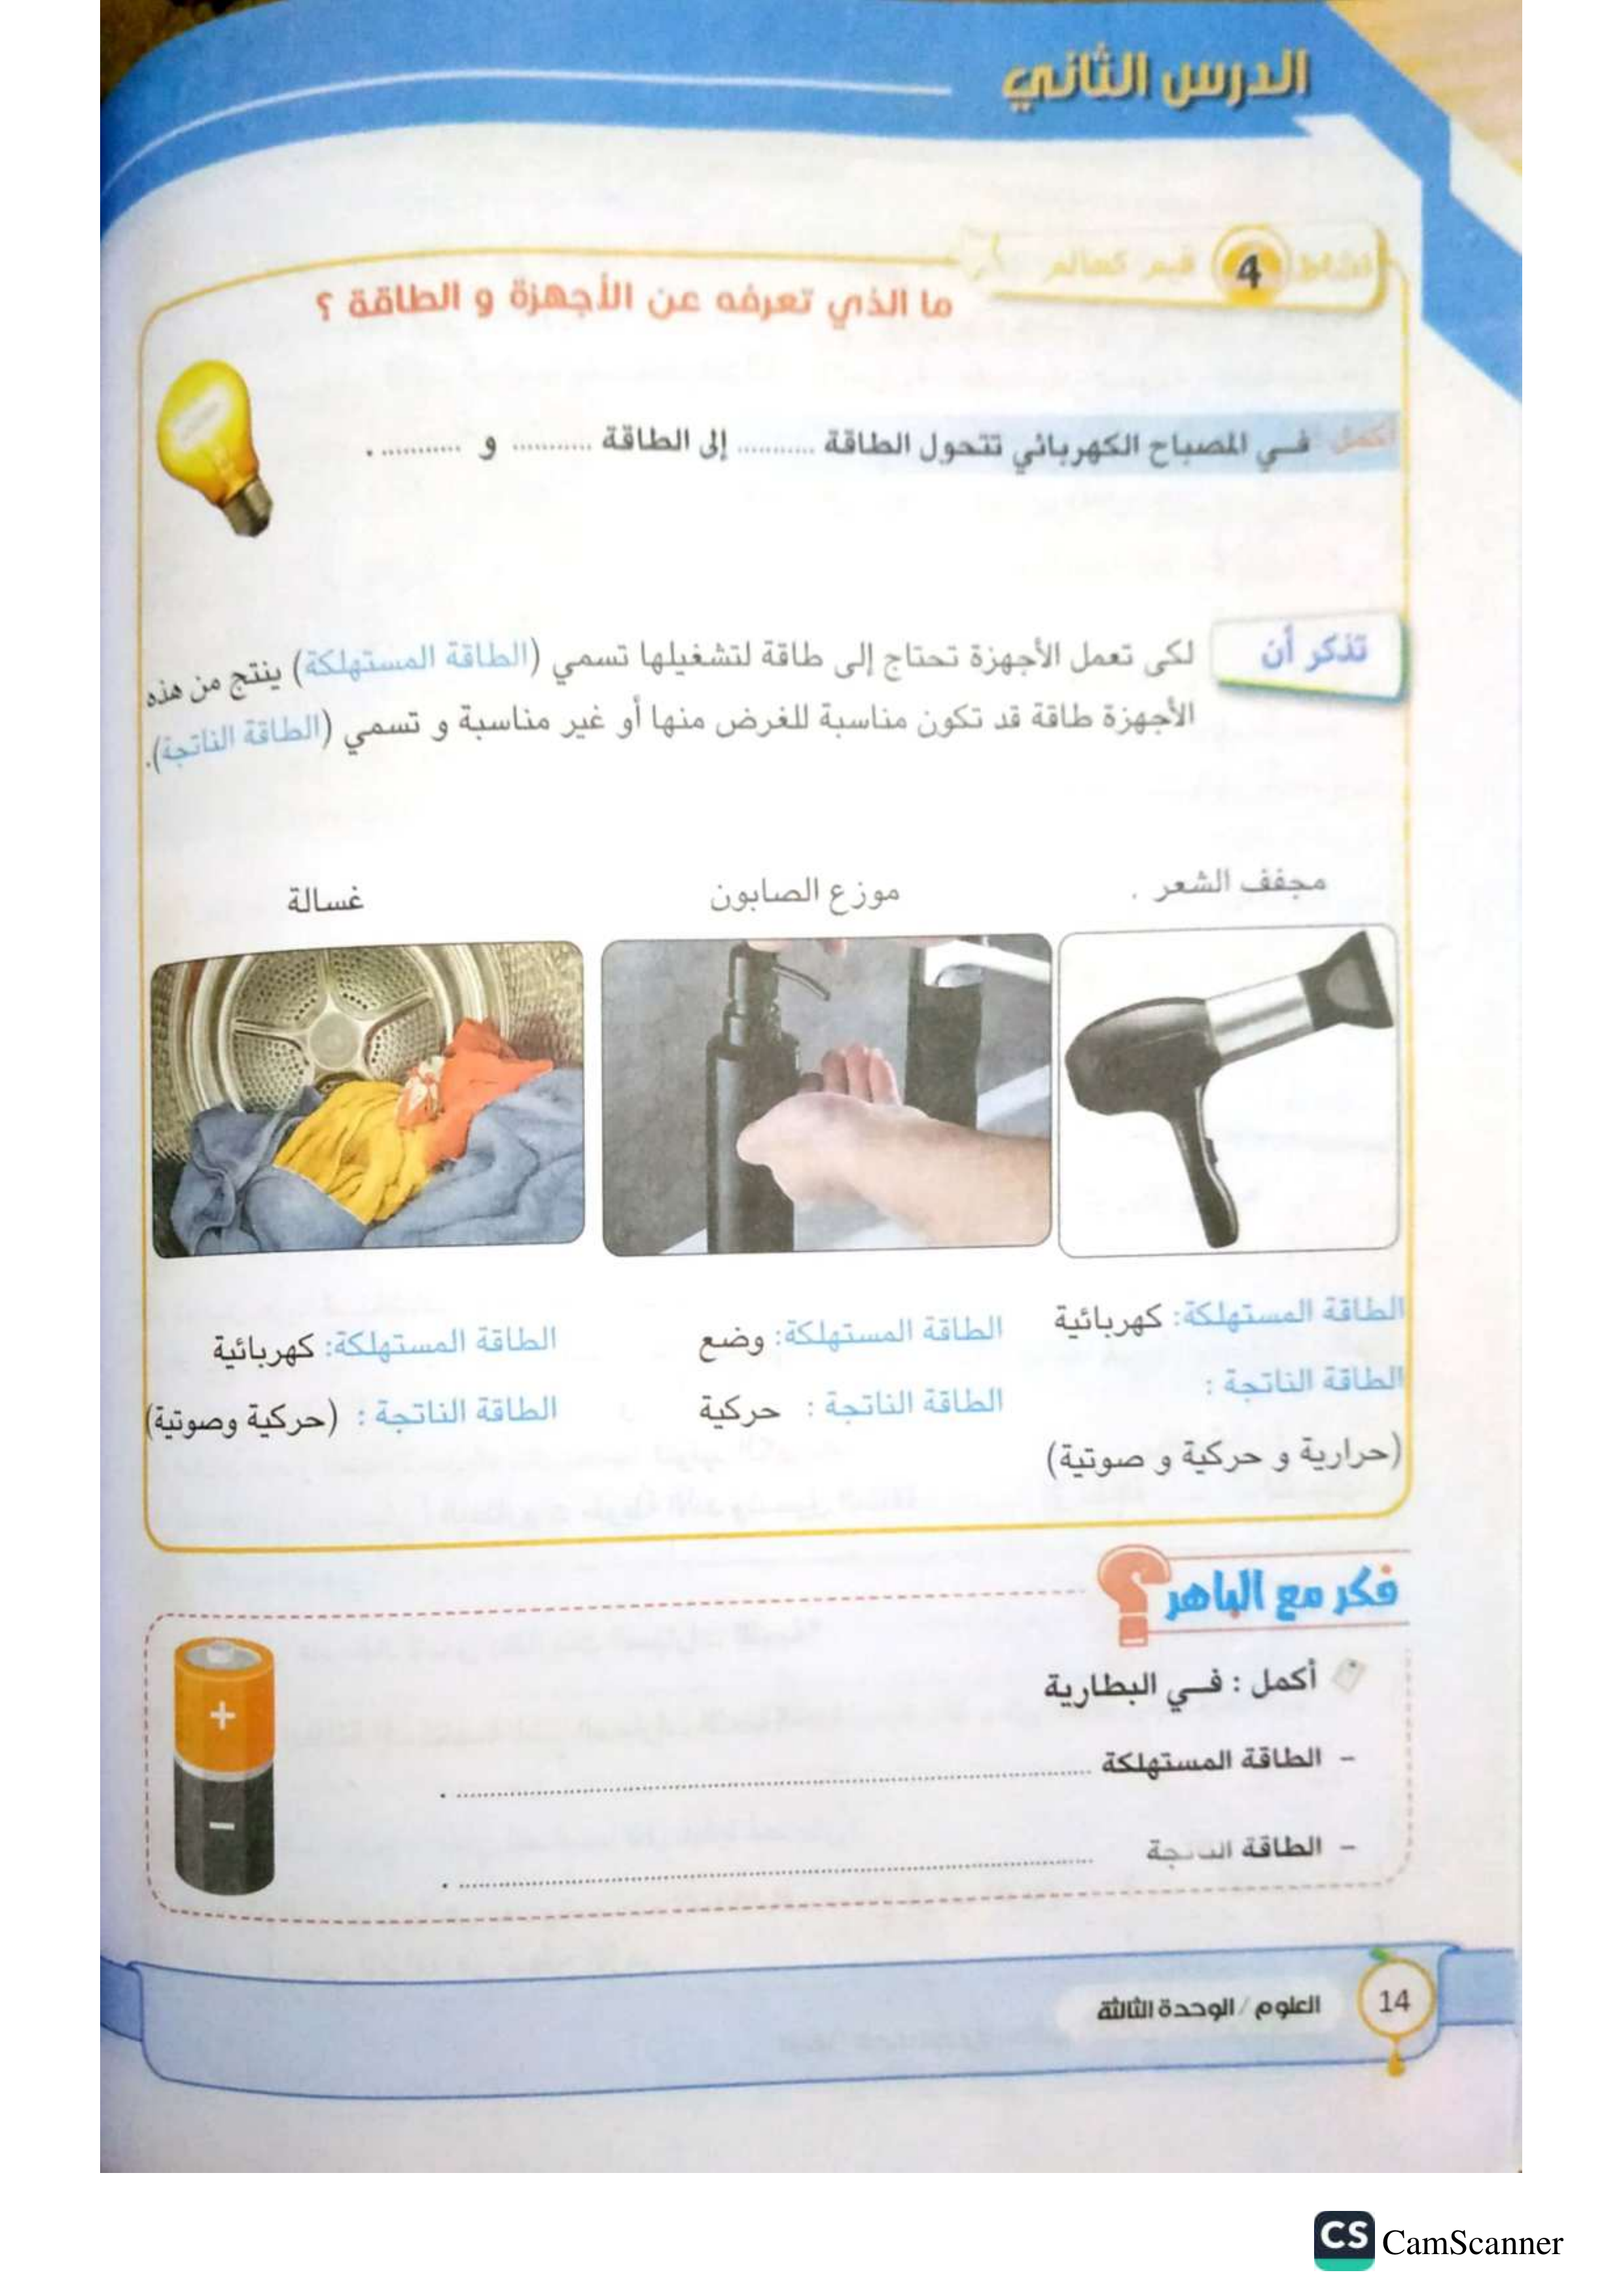 الدرس الثاني
نشاط 4 قيم كعالم
ما الذي تعرفه عن الأجهزة و الطاقة ؟
أكمل فـي المصباح الكهربائي تتحول الطاقة .......... إلى الطاقة .......... و .......... .
تذكر أن
لكى تعمل الأجهزة تحتاج إلى طاقة لتشغيلها تسمي (الطاقة المستهلكة) ينتج من هذه
الأجهزة طاقة قد تكون مناسبة للغرض منها أو غير مناسبة و تسمي (الطاقة الناتجة).
مجفف الشعر .
موزع الصابون
غسالة
الطاقة المستهلكة: كهربائية
الطاقة الناتجة :
(حرارية و حركية و صوتية)
الطاقة المستهلكة: وضع
الطاقة الناتجة : حركية
الطاقة المستهلكة: كهربائية
الطاقة الناتجة : (حركية وصوتية)
فكر مع الباهر ?
أكمل : فـي البطارية
+
- الطاقة المستهلكة .......... .
- الطاقة الناتجة .......... .
-
14
العلوم / الوحدة الثالثة
CS CamScanner